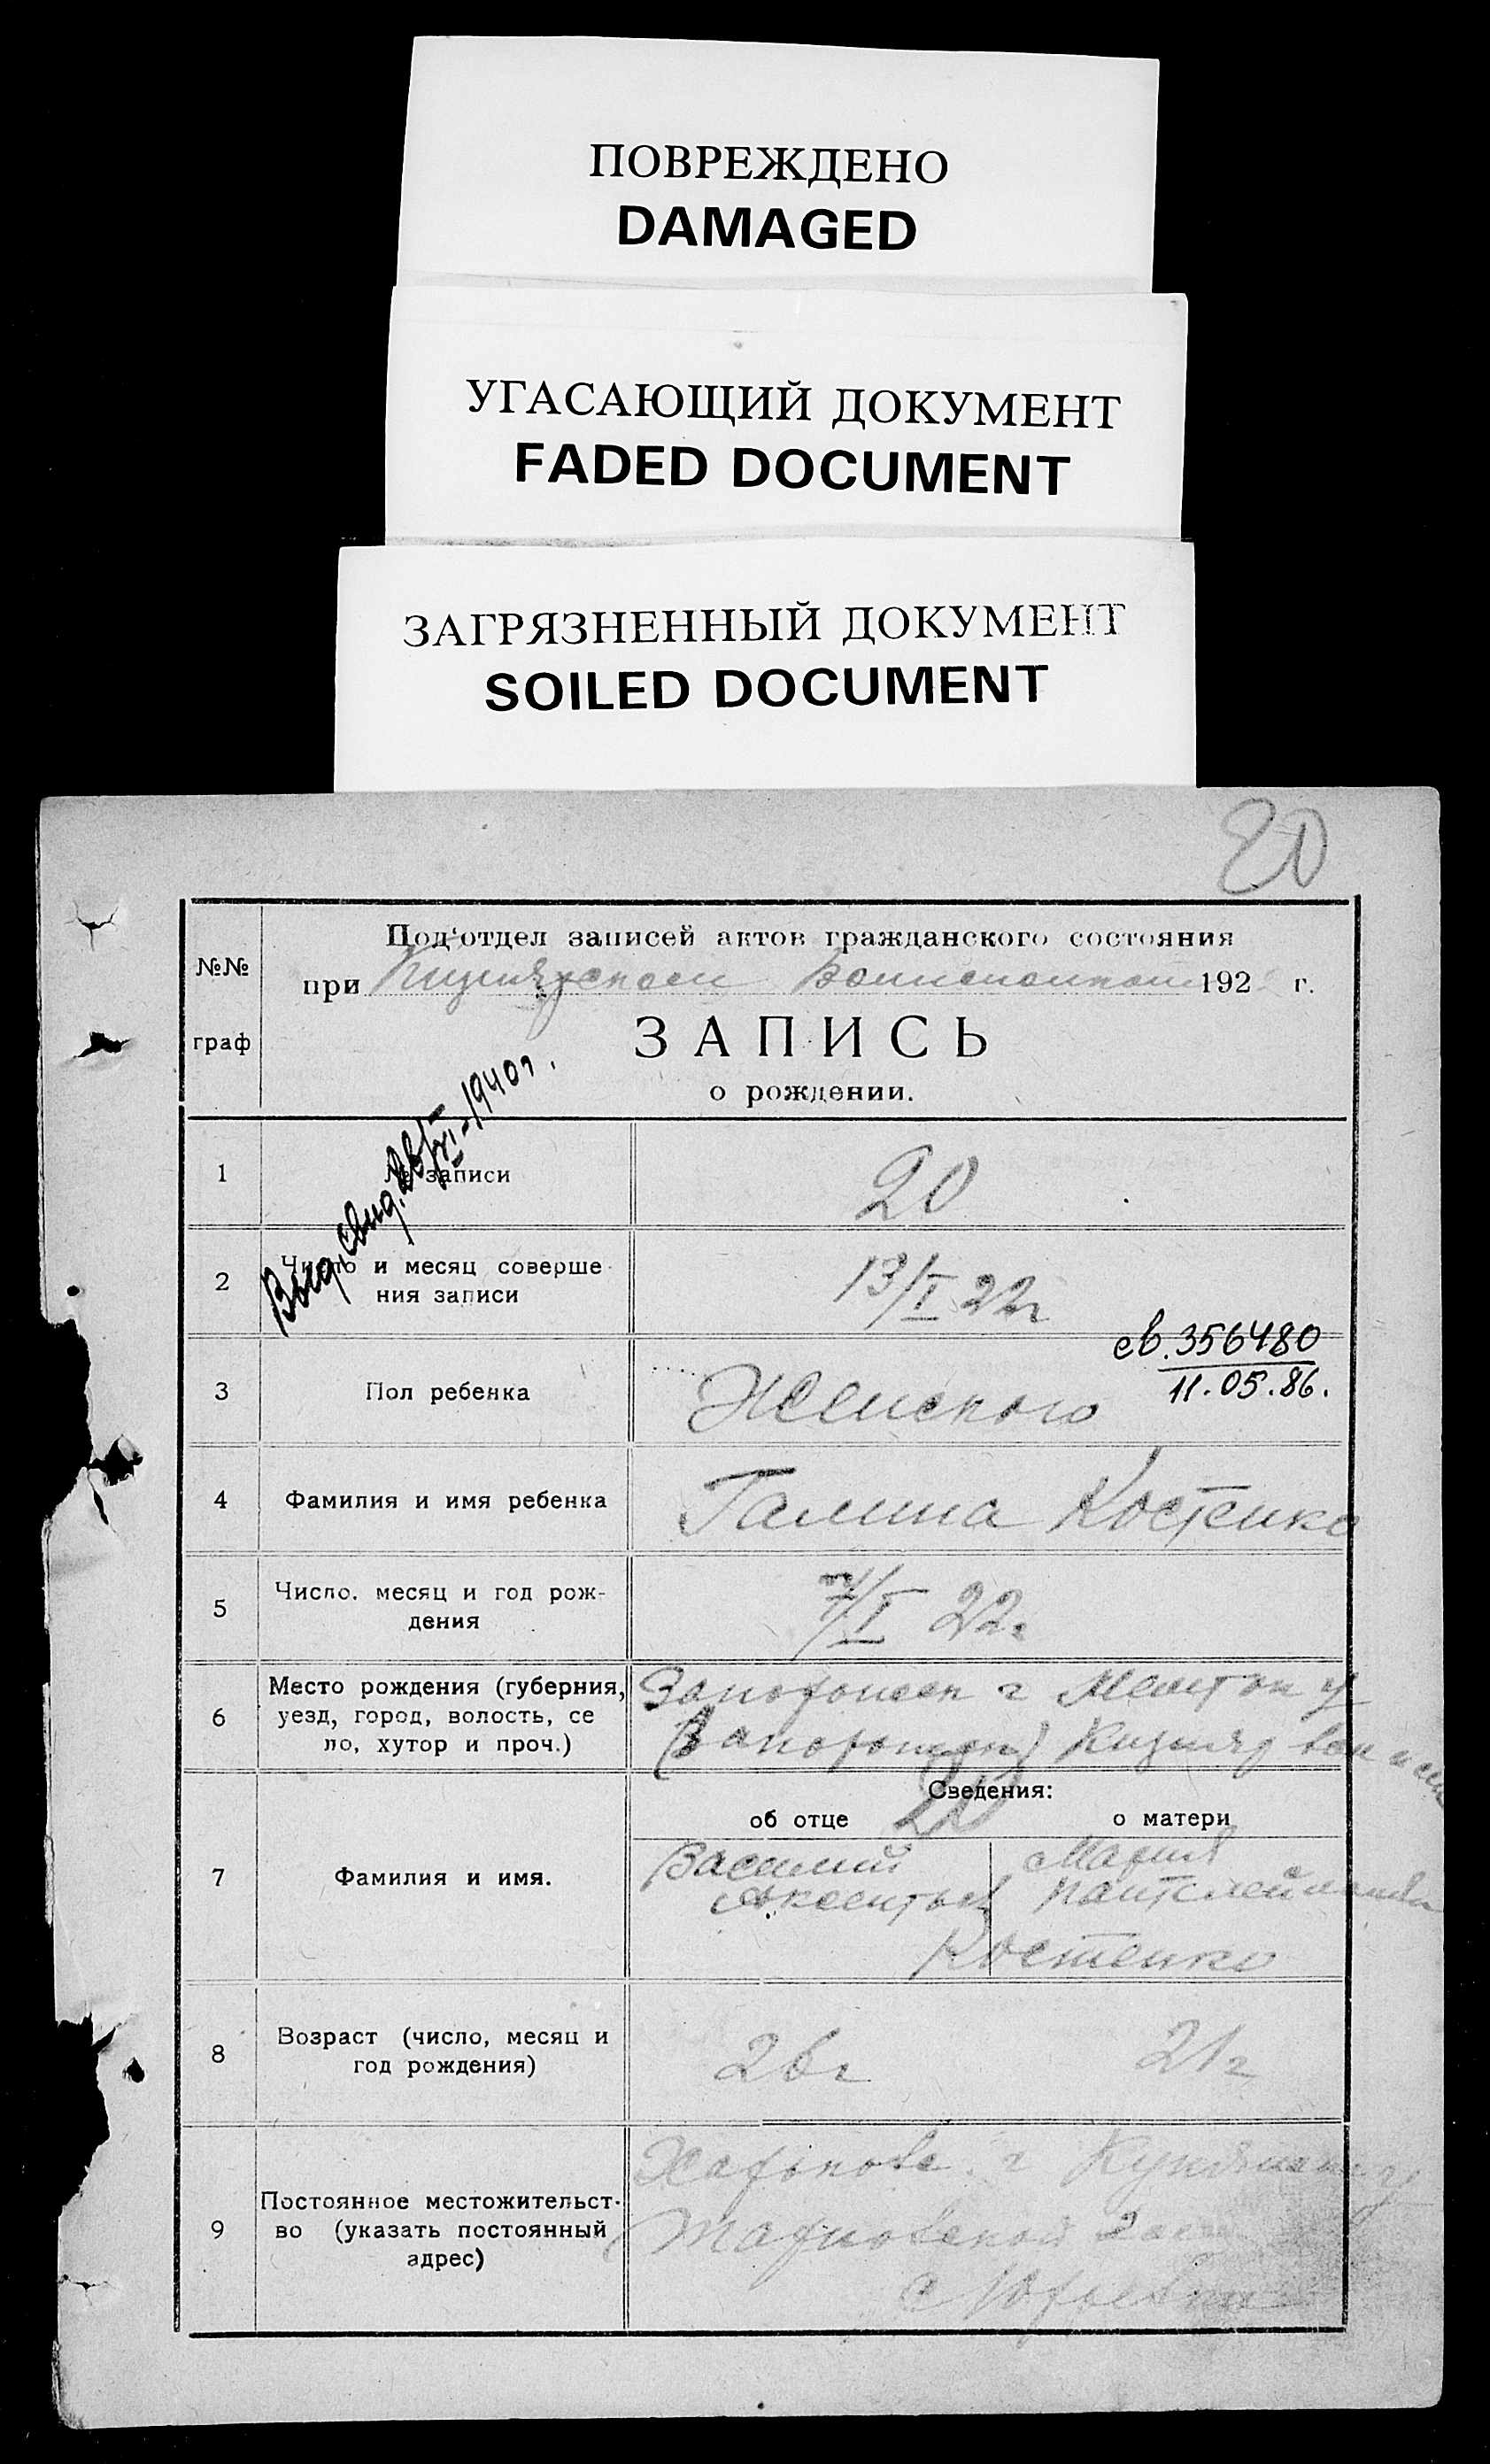 ПОВРЕЖДЕНО
DAMAGED
УГАСАЮЩИЙ ДОКУМЕНТ
FADED DOCUMENT
ЗАГРЯЗНЕННЫЙ ДОКУМЕНТ
SOILED DOCUMENT
20
№№ граф
Под'отдел записей актов гражданского состояния
при 192 г.
ЗАПИСЬ
о рождении.
Выд. свид. XI-1940г.
1 № записи 20
2 Число и месяц соверше
ния записи 13/I 22г
св. 356480
11.05.86.
3 Пол ребенка Женского
4 Фамилия и имя ребенка Галина Костенко
5 Число. месяц и год рож-
дения 7/I 22г
6 Место рождения (губерния,
уезд, город, волость, се
ло, хутор и проч.)
Запорожск г Мелитоп у
(Запорожск) Кизияр
20
Сведения:
об отце о матери
7 Фамилия и имя.
Василий Мария
Костенко
8 Возраст (число, месяц и
год рождения) 26г 21г
9 Постоянное местожительст-
во (указать постоянный
адрес)
Харьков г Купянск у
с